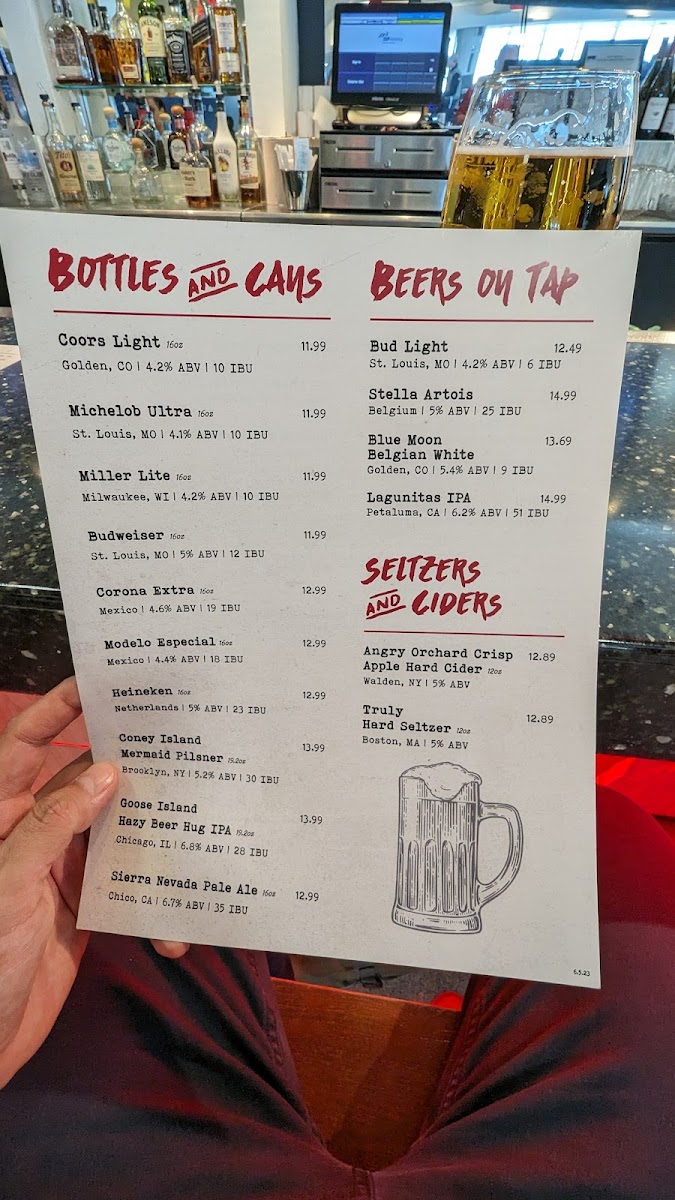 BOTTLES AND CANS
Coors Light 16oz 11.99
Golden, CO | 4.2% ABV | 10 IBU
Michelob Ultra 16oz 11.99
St. Louis, MO | 4.1% ABV | 10 IBU
Miller Lite 16oz 11.99
Milwaukee, WI | 4.2% ABV | 10 IBU
Budweiser 16oz 11.99
St. Louis, MO | 5% ABV | 12 IBU
Corona Extra 16oz 12.99
Mexico | 4.6% ABV | 19 IBU
Modelo Especial 16oz 12.99
Mexico | 4.4% ABV | 18 IBU
Heineken 16oz 12.99
Netherlands | 5% ABV | 23 IBU
Coney Island
Mermaid Pilsner 19.2oz 13.99
Brooklyn, NY | 5.2% ABV | 30 IBU
Goose Island
Hazy Beer Hug IPA 19.2oz 13.99
Chicago, IL | 6.8% ABV | 28 IBU
Sierra Nevada Pale Ale 16oz 12.99
Chico, CA | 6.7% ABV | 35 IBU
BEERS ON TAP
Bud Light 12.49
St. Louis, MO | 4.2% ABV | 6 IBU
Stella Artois 14.99
Belgium | 5% ABV | 25 IBU
Blue Moon 13.69
Belgian White
Golden, CO | 5.4% ABV | 9 IBU
Lagunitas IPA 14.99
Petaluma, CA | 6.2% ABV | 51 IBU
SELTZERS
AND CIDERS
Angry Orchard Crisp 12.89
Apple Hard Cider 12oz
Walden, NY | 5% ABV
Truly 12.89
Hard Seltzer 12oz
Boston, MA | 5% ABV
6.5.23